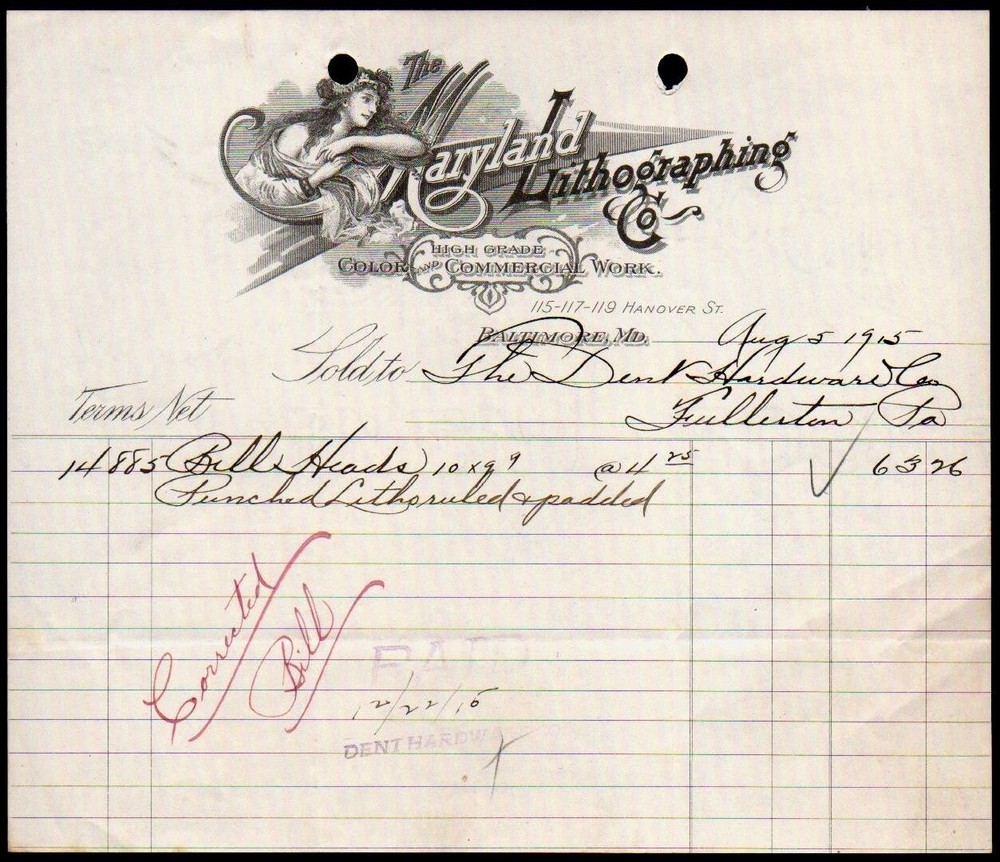 The Maryland Lithographing Co
HIGH GRADE
COLOR AND COMMERCIAL WORK.
115-117-119 HANOVER ST.
BALTIMORE, MD. Aug 5 1915
Sold to The Dent Hardware Co
Terms Net Fullerton Pa
14885 Bill Heads 10 x 9 9 @ 4 25 63 26
Punched Litho ruled & padded
Corrected
Bill
PAID
12/22/15
DENT HARDWA